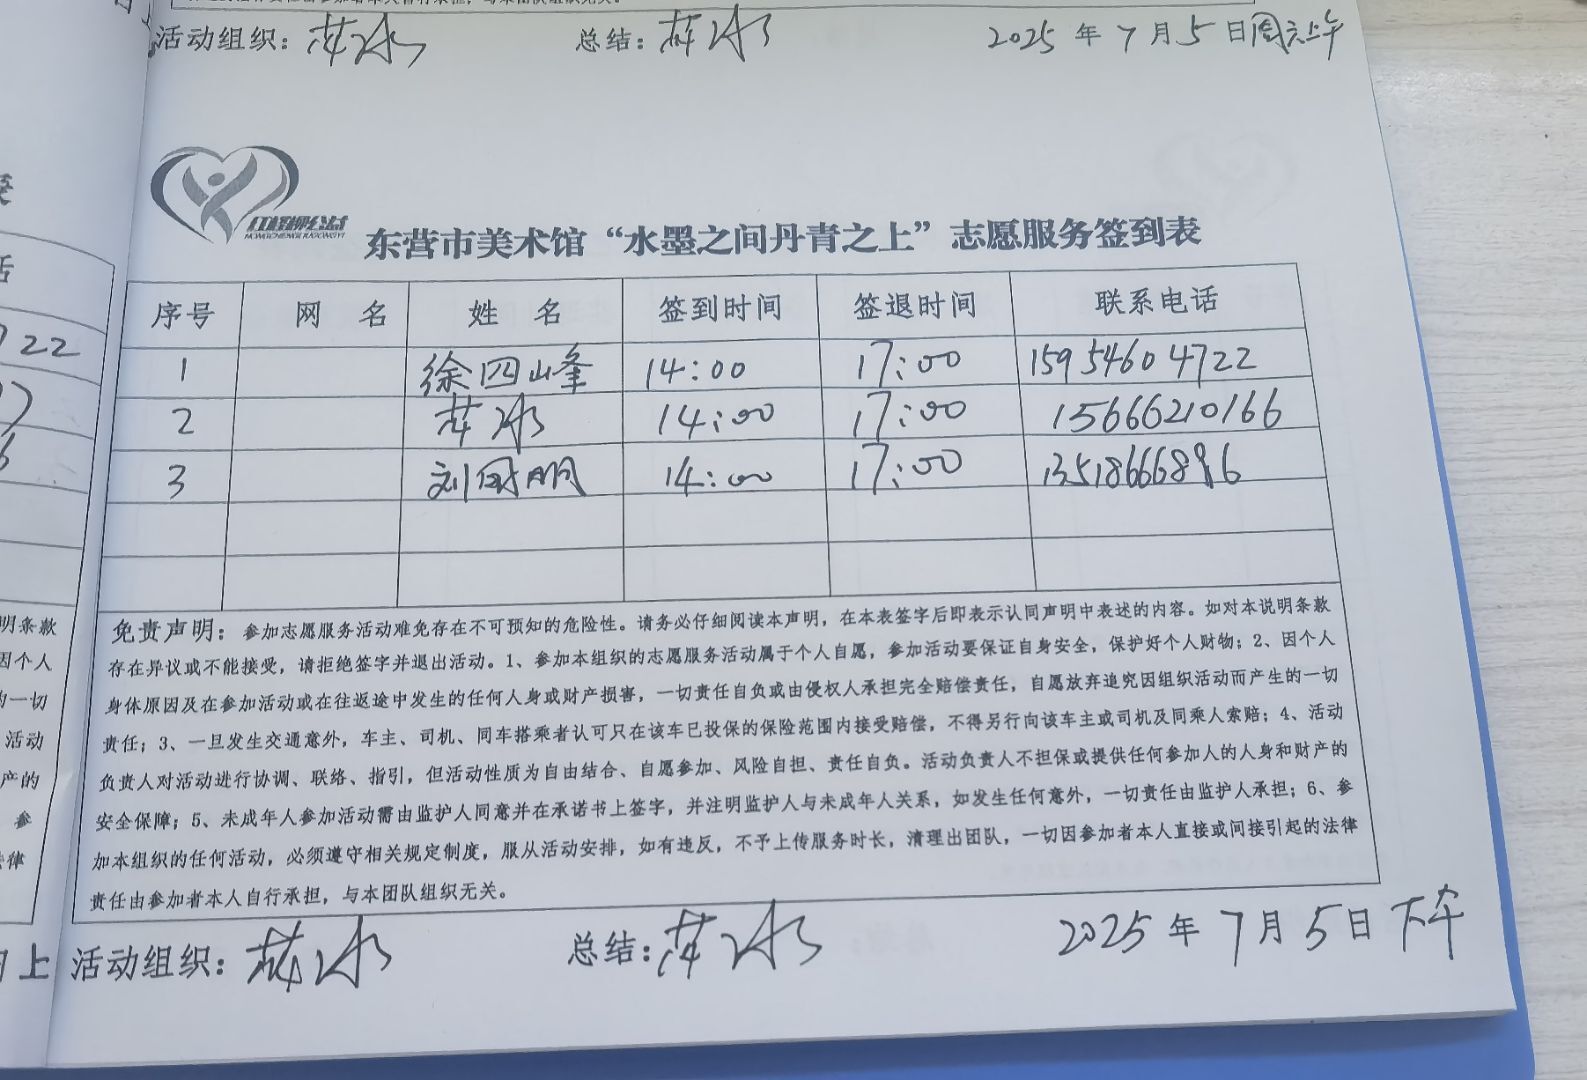 活动组织：薛冰 总结：薛冰 2025年7月5日周六上午
红柽柳公益
东营市美术馆“水墨之间丹青之上”志愿服务签到表
序号 网 名 姓 名 签到时间 签退时间 联系电话
1 徐四峰 14:00 17:00 15954604722
2 薛冰 14:00 17:00 15666210166
3 刘国朋 14:00 17:00 13518666896
免责声明：参加志愿服务活动难免存在不可预知的危险性。请务必仔细阅读本声明，在本表签字后即表示认同声明中表述的内容。如对本说明条款
存在异议或不能接受，请拒绝签字并退出活动。1、参加本组织的志愿服务活动属于个人自愿，参加活动要保证自身安全，保护好个人财物；2、因个人
身体原因及在参加活动或在往返途中发生的任何人身或财产损害，一切责任自负或由侵权人承担完全赔偿责任，自愿放弃追究因组织活动而产生的一切
责任；3、一旦发生交通意外，车主、司机、同车搭乘者认可只在该车已投保的保险范围内接受赔偿，不得另行向该车主或司机及同乘人索赔；4、活动
负责人对活动进行协调、联络、指引，但活动性质为自由结合、自愿参加、风险自担、责任自负。活动负责人不担保或提供任何参加人的人身和财产的
安全保障；5、未成年人参加活动需由监护人同意并在承诺书上签字，并注明监护人与未成年人关系，如发生任何意外，一切责任由监护人承担；6、参
加本组织的任何活动，必须遵守相关规定制度，服从活动安排，如有违反，不予上传服务时长，清理出团队，一切因参加者本人直接或间接引起的法律
责任由参加者本人自行承担，与本团队组织无关。
活动组织：薛冰 总结：薛冰 2025年7月5日下午